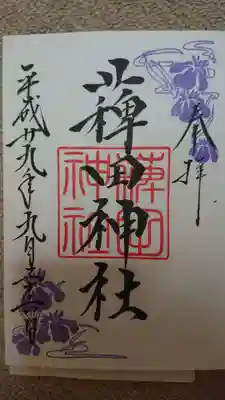 奉拝
薭田神社
薭田
神社
平成廿九年九月日